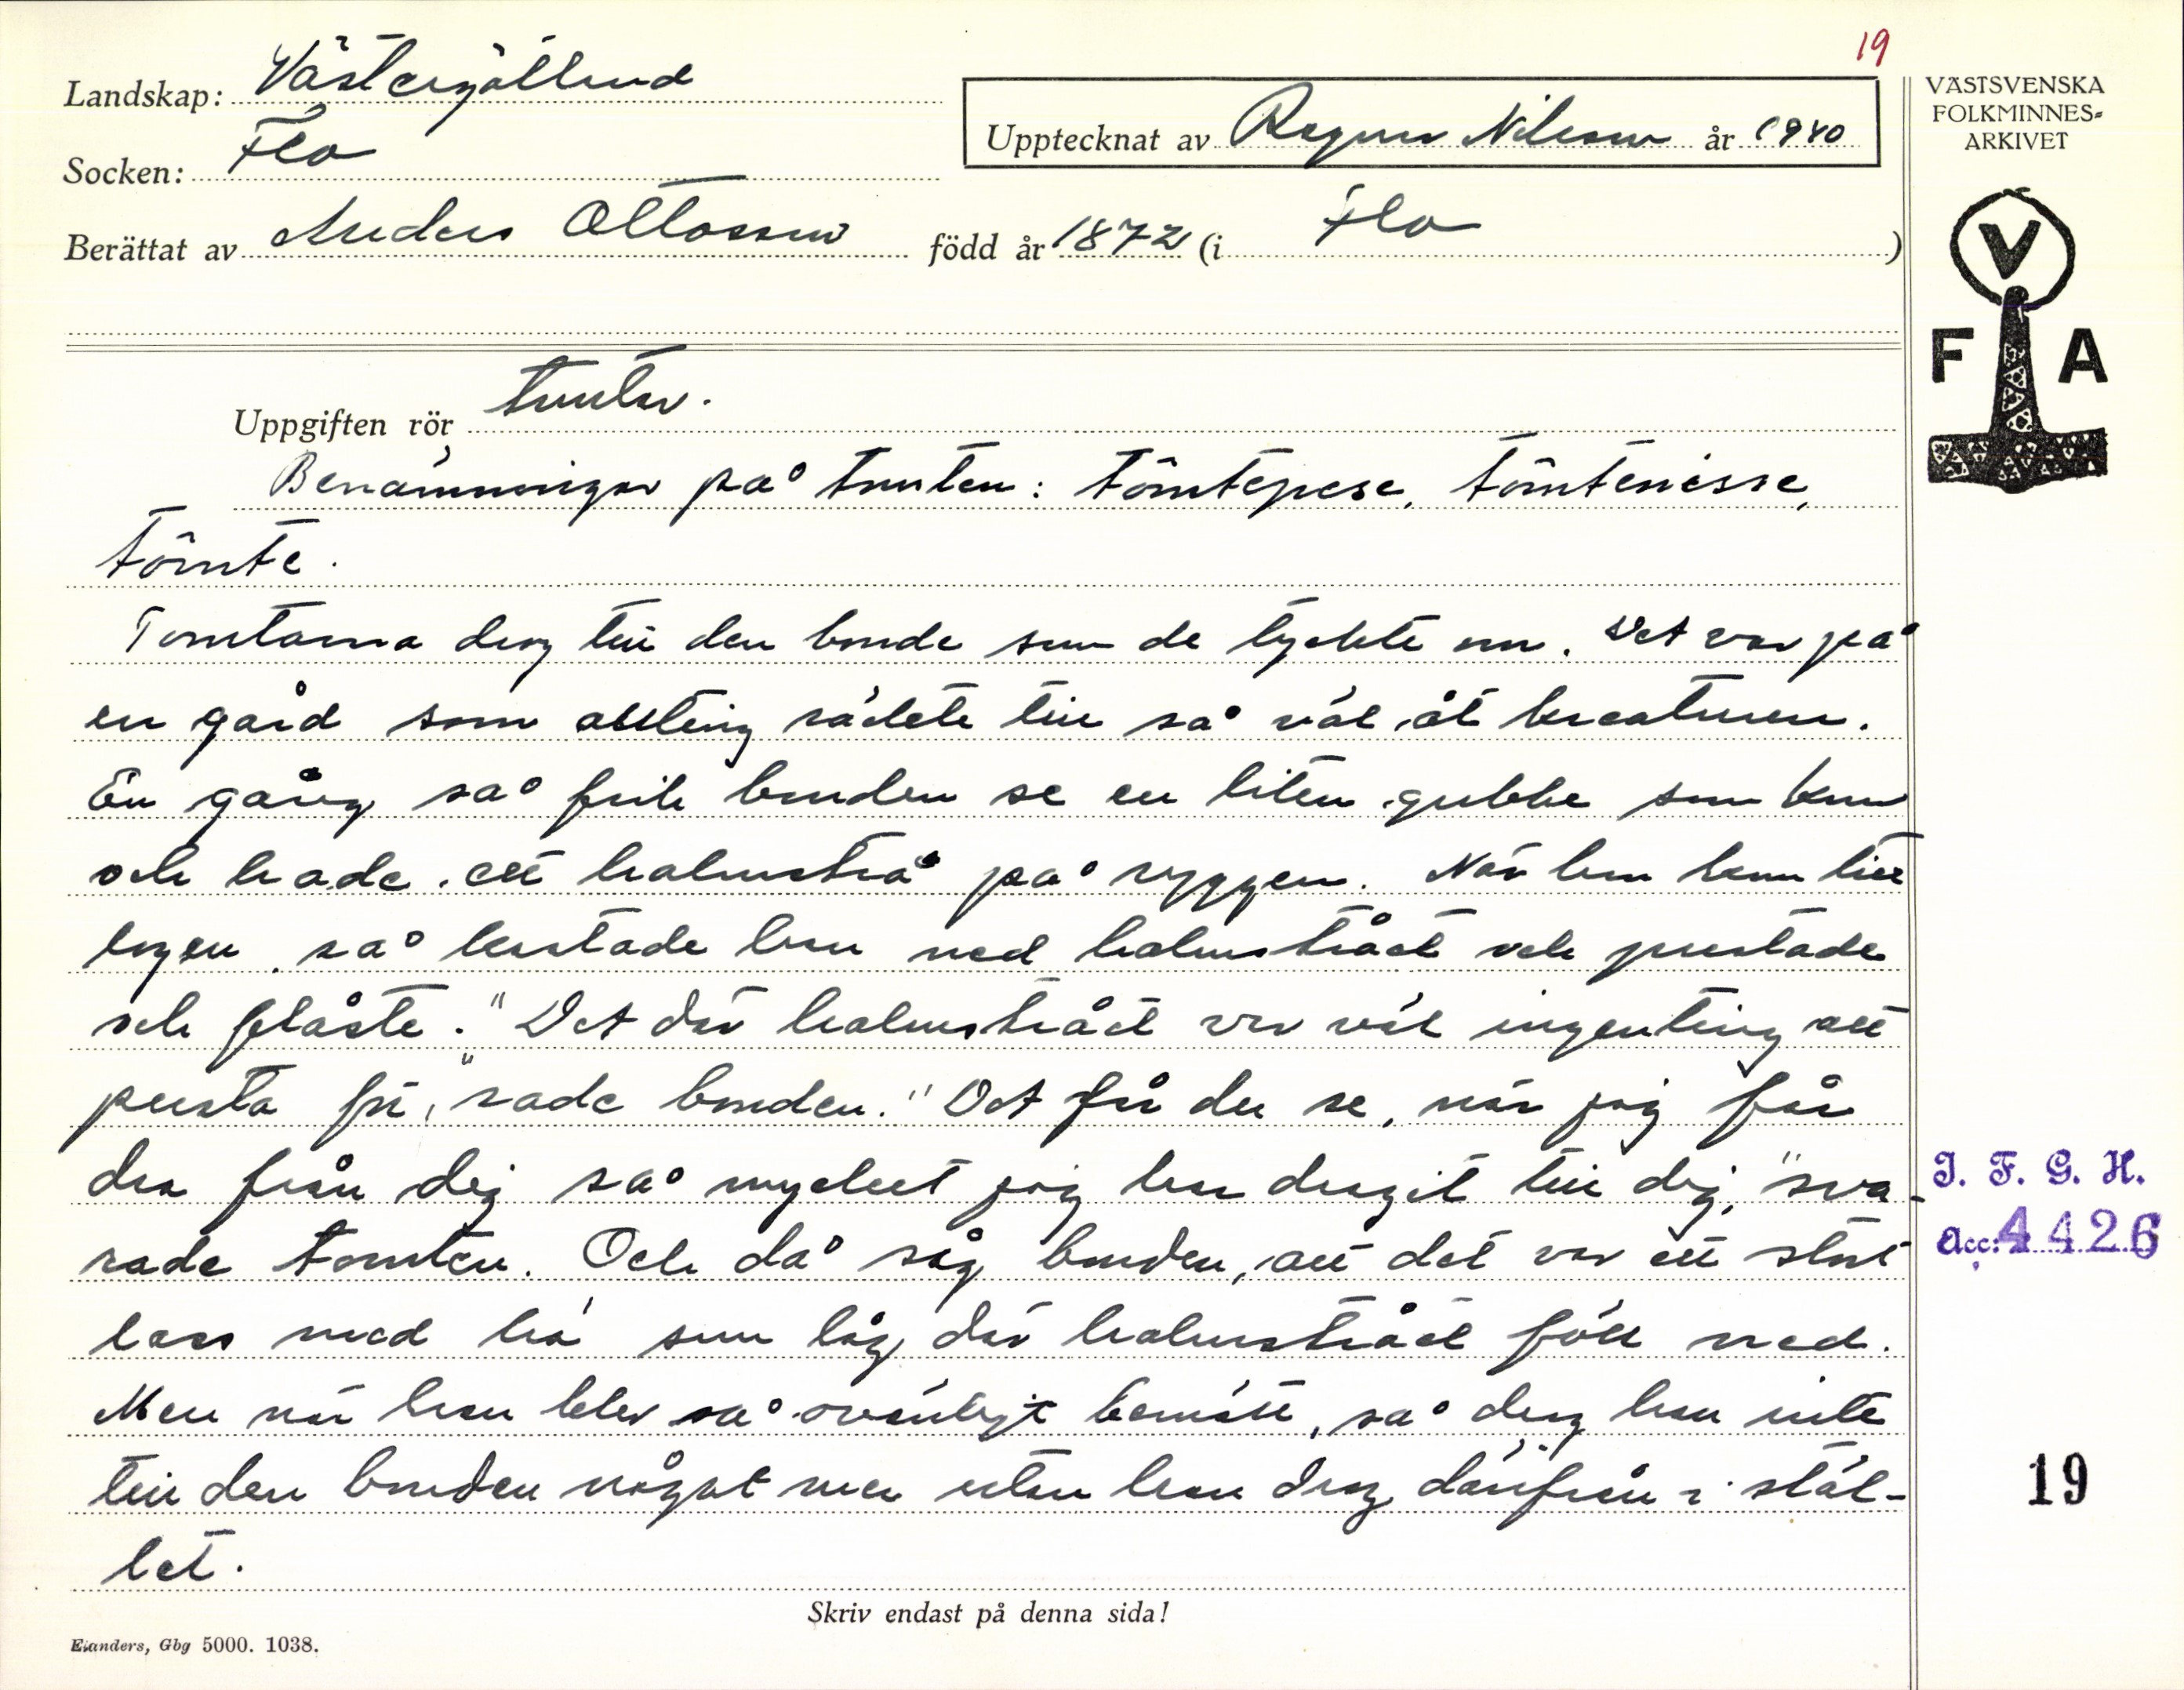 19
Landskap: Västergötland
Upptecknat av Ragnar Nilsson år 1940
VÄSTSVENSKA
FOLKMINNES-
ARKIVET
Socken: Flo
Berättat av Anders Ottosson född år 1872 (i Flo )
V
F A
Uppgiften rör tomtar.
Benämningar på tomten: tômtepese, tômtenisse,
tômte.
Tomtarna drog till den bonde som de tyckte om. Det var på
en gård som allting räckte till så väl åt kreaturen.
En gång så fick bonden se en liten gubbe som kom
och hade ett halmstrå på ryggen. När han kom till
logen så kastade han ned halmstrået och pustade
och flåste. "Det där halmstrået var väl ingenting att
pusta för," sade bonden. "Det får du se, när jag får
dra från dig så mycket jag har dragit till dig," sva-
rade tomten. Och då såg bonden, att det var ett stort
lass med hö som låg där halmstrået föll ned.
Men när han blev så ovänligt bemött, så drog han inte
till den bonden något mer utan han drog därifrån i stäl-
let.
J. F. G. H.
Acc: 4426
19
Skriv endast på denna sida!
Elanders, Gbg 5000. 1038.